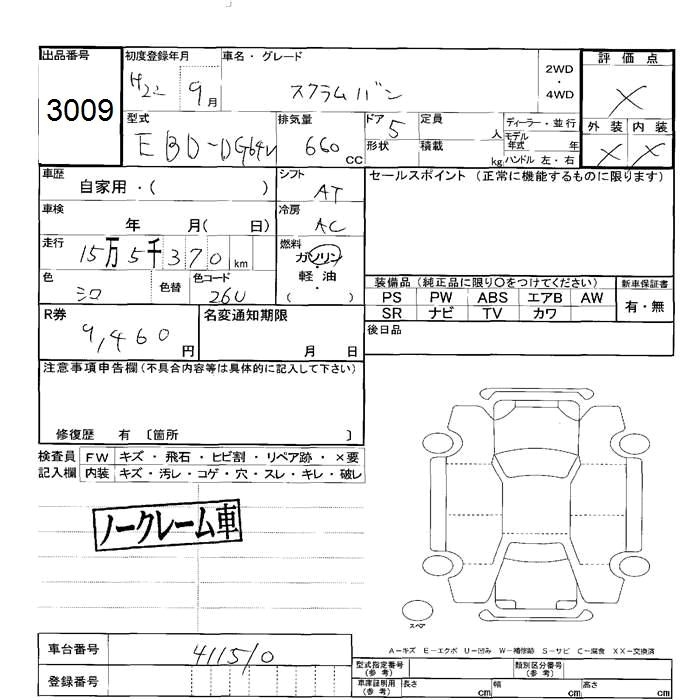 出品番号
3009
初度登録年月
H22 9月
車名・グレード
スクラムバン
2WD
・
4WD
評価点
×
外装 内装
× ×
型式
EBD-DG64V
排気量
660 CC
ドア 5
形状
定員 人
積載 kg
ディーラー・並行
モデル
年式 年
ハンドル 左・右
車歴
自家用・( )
シフト
AT
セールスポイント (正常に機能するものに限ります)
車検
年 月( 日)
冷房
AC
走行
15万5千370km
燃料
ガソリン
・
軽油
( )
色
シロ
色替
色コード
26U
装備品 (純正品に限り○をつけてください)
新車保証書
PS PW ABS エアB AW
SR ナビ TV カワ
有・無
R券
9,460円
名変通知期限
月 日
後日品
注意事項申告欄(不具合内容等は具体的に記入して下さい)
修復歴 有 〔箇所 〕
検査員 FW キズ・飛石・ヒビ割・リペア跡・×要
記入欄 内装 キズ・汚レ・コゲ・穴・スレ・キレ・破レ
ノークレーム車
スペア
A－キズ E－エクボ U－凹み W－補修跡 S－サビ C－腐食 XX－交換済
車台番号
411510
登録番号
型式指定番号
(参考)
類別区分番号
(参考)
車庫証明用
(参考)
長さ cm 幅 cm 高さ cm